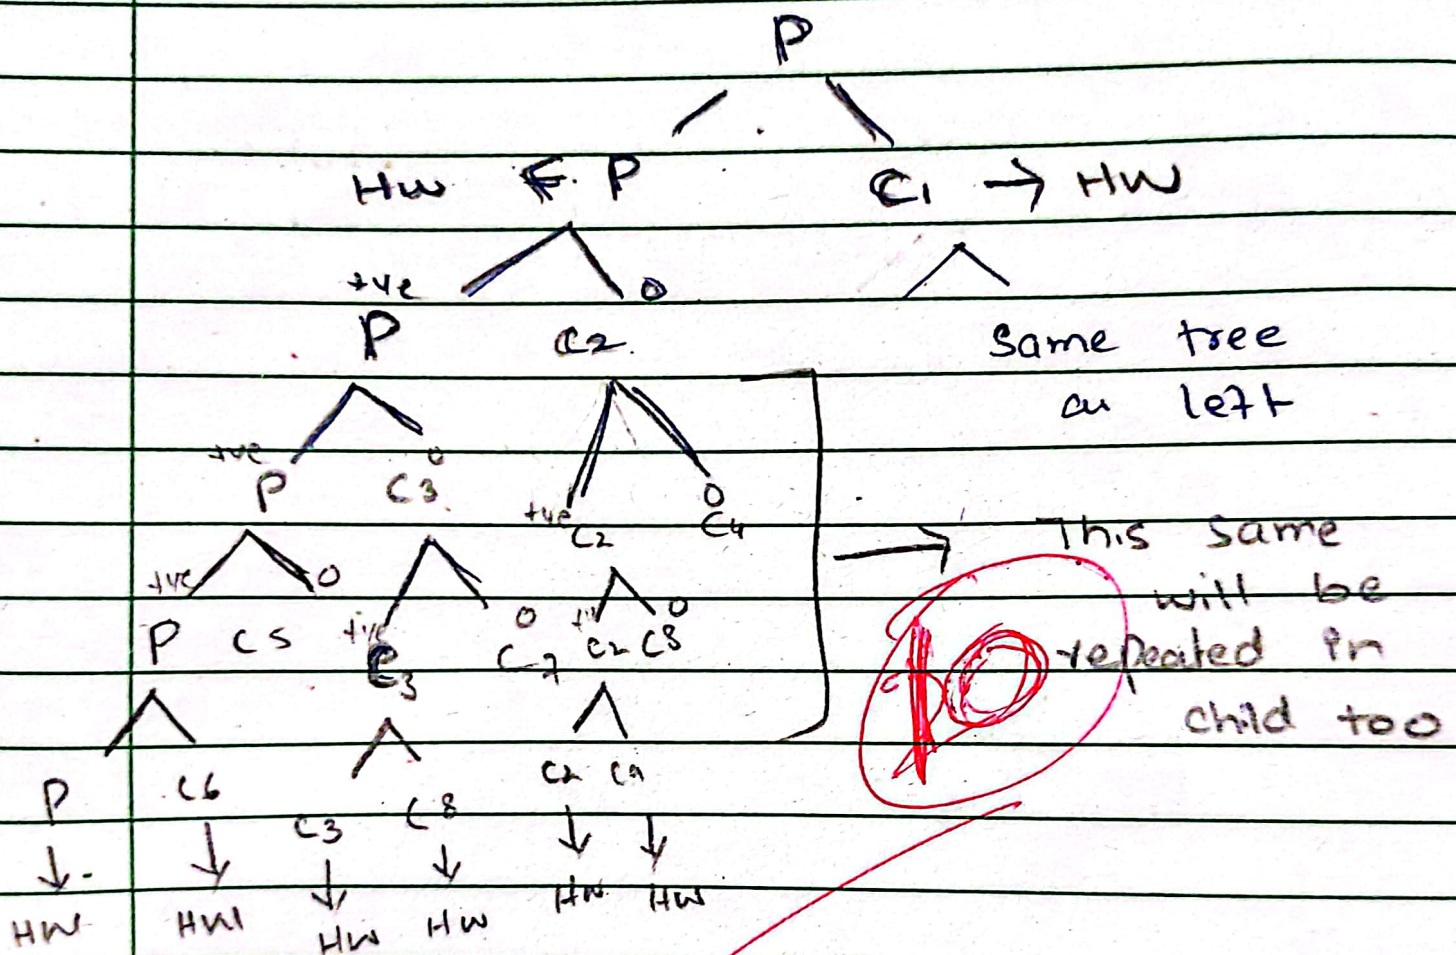 P
HW P C1 → HW
+ve 0
P C2
Same tree
as left
+ve 0
P C3
+ve 0
C2 C4
This same
will be
repeated in
child too
+ve 0 +ve 0 +ve 0
P C5 C3 C7 C2 C8
10
P C6 C3 C8 C2 C9
HW HW HW HW HW HW